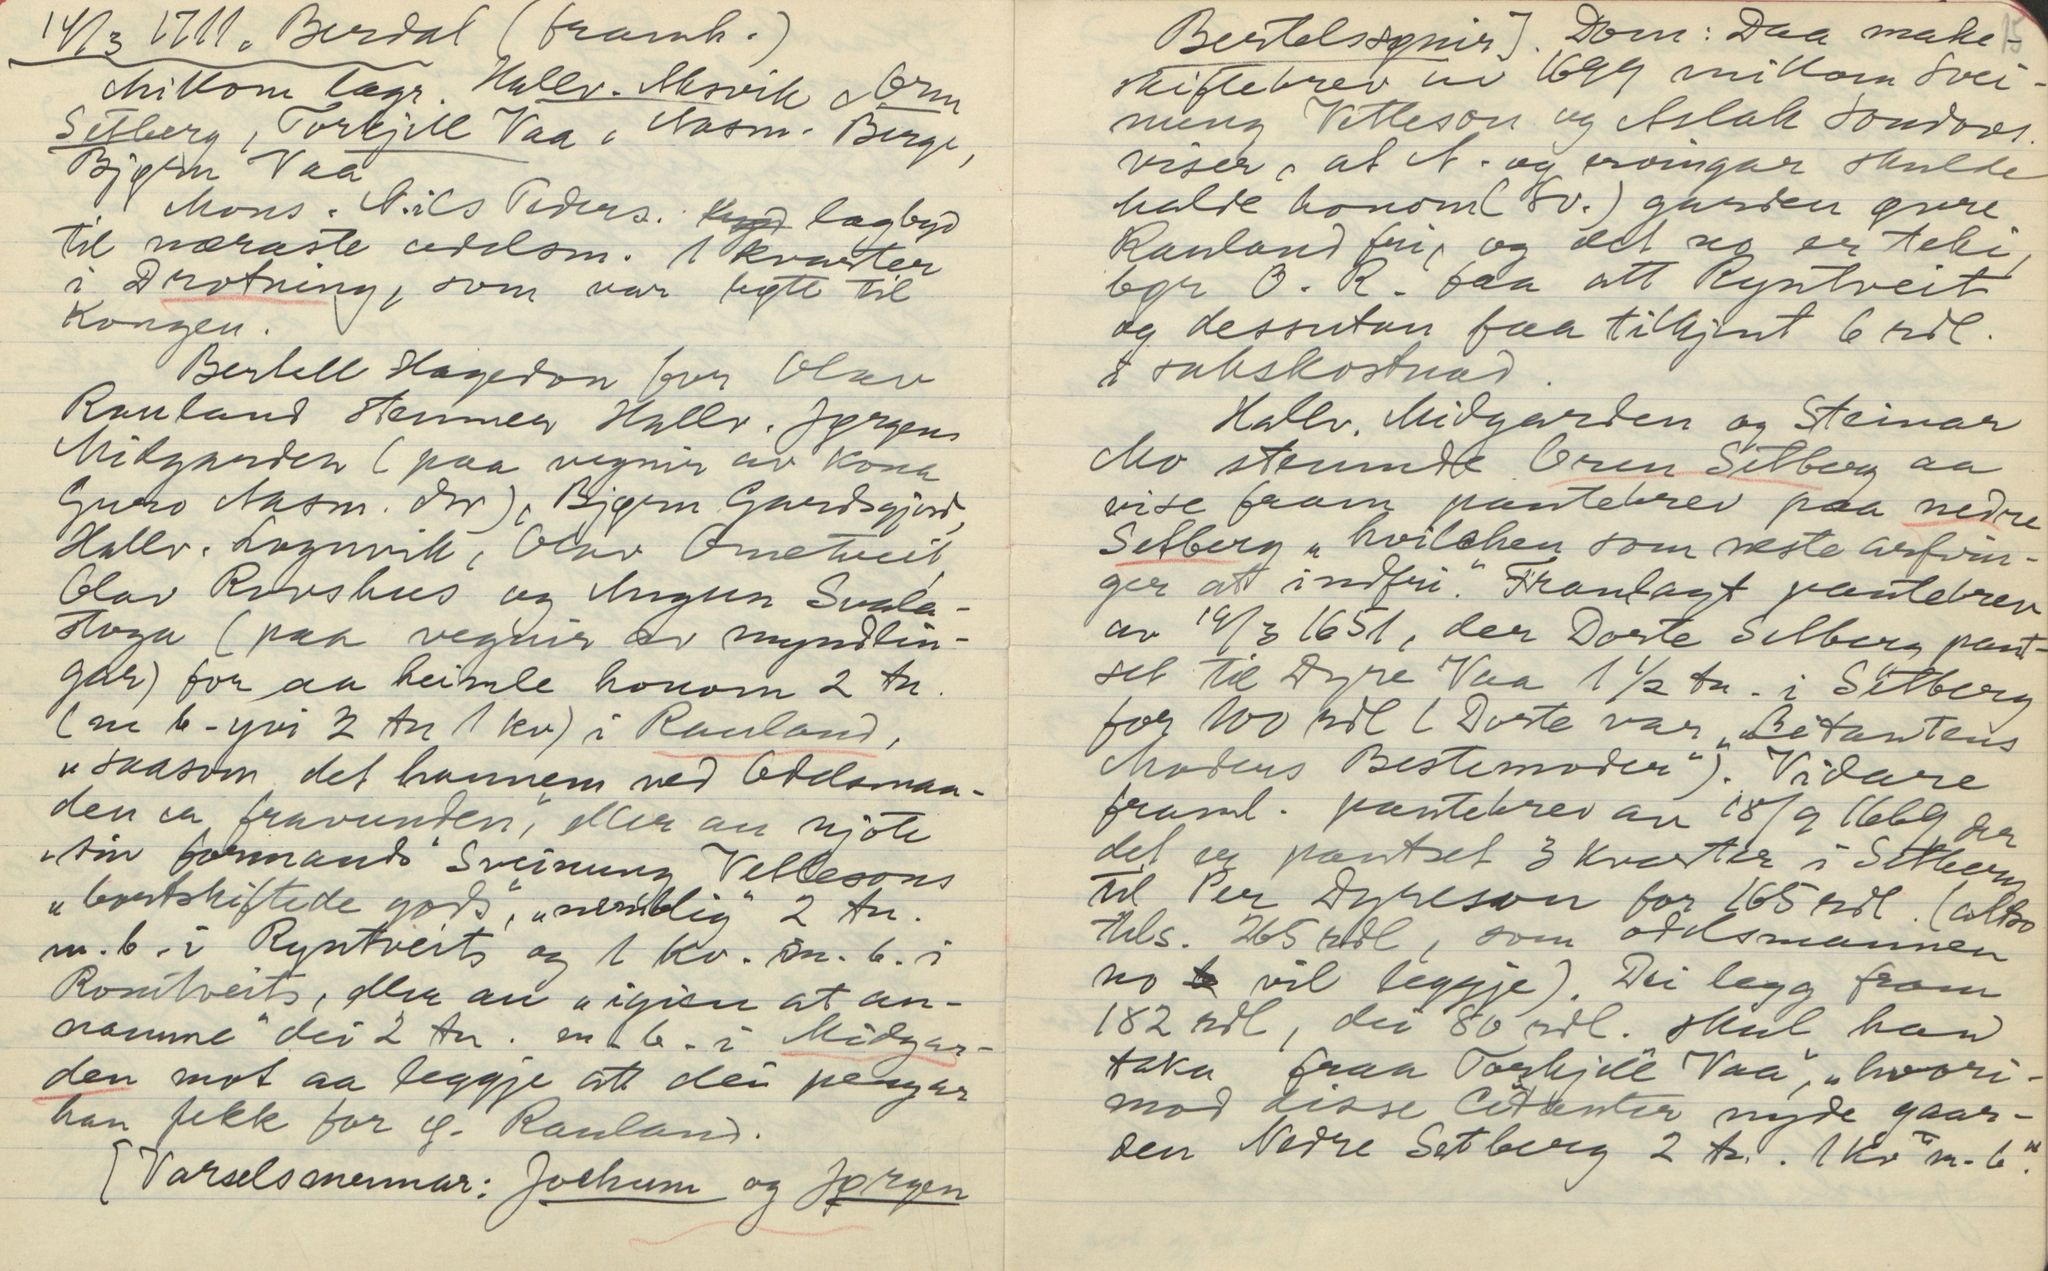 14/3 1711. Berdal (framh.)
Millom lagr. Hallv. Aksvik, Orm
Setberg, Torkjell Vaa, Aasm. Berge,
Bjørn Vaa
Mons. Nils Peders. lagbyd
til næraste odelsm. 1 kvarter
i Drotning, som var selt til
Kongen.
Bertell Hagedon for Olav
Rauland stemner Hallv. Jørgens
Midgarden (paa vegnir av kona
Guro Aasm. dtr), Bjørn Gardsgjord,
Hallv. Lognvik, Olav Ometveit,
Olav Rovshus og Augun Svala-
stoga (paa vegnir av myndlin-
gar) for aa heimle honom 2 tn.
(m b - yvi 2 tn 1 kv) i Rauland,
"saasom det hannem ved Odelsmaa-
den er fravunden", eller au njote
"sin formands" Sveinung Vetlesons
"bortskiftede gods", "nemblig" 2 tn.
m. b. i Ryntveit og 1 kv. m. b. i
Romtveit, eller au "igien at an-
namme" dei 2 tn. m. b. i Midgar-
den mot aa leggje att dei pengar
han fekk for ø. Rauland.
[Varselsmennar: Jochum og Jørgen
15
Bertelssønir]. Dom: Daa make-
skiftebrev av 1699 millom Svei-
nung Vetleson og Aslak Sondres.
viser, at A. og ervingar skulde
halde honom (Sv.) garden øvre
Rauland fri, og det no er teki,
bør O. R. faa att Ryntveit
og dessutan faa tilkjent 6 rdl.
i sakskostnad.
Hallv. Midgarden og Steinar
Mo stemnde Orm Setberg aa
vise fram pantebrev paa nedre
Setberg "hvilchen som neste arfvin-
ger att indfri". Framlagt pantebrev
av 14/3 1651, der Dorte Setberg pant-
set til Dyre Vaa 1 1/2 tn. i Setberg
for 100 rdl (Dorte var "Citantens
Moders Bestemoder"). Vidare
framl. pantebrev av 18/9 1669, der
det er pantset 3 kvarter i Setberg
til Per Dyreson for 165 rdl. (altso
tils. 265 rdl, som odelsmannen
no vil leggje). Dei legg fram
182 rdl, dei 80 rdl. skul han
taka fraa Torkjell Vaa, "hvori-
mod disse Citanter nyde gaar-
den Nedre Setberg 2 tn. 1 kv m. b."